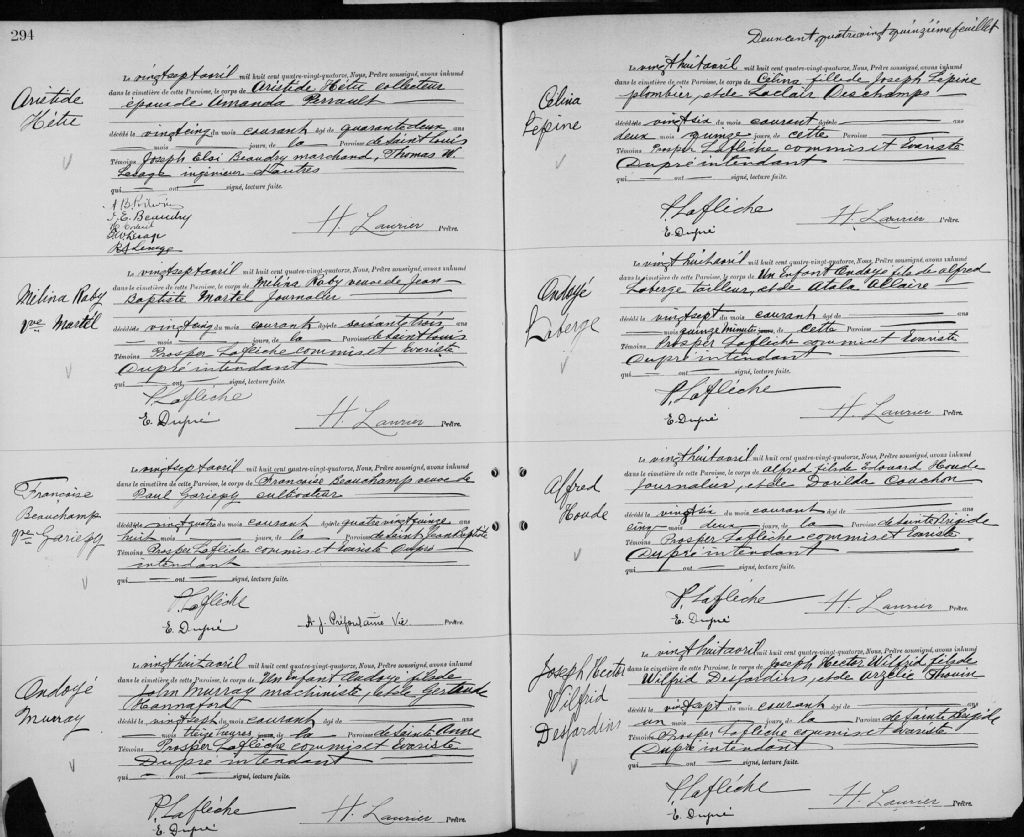 294
Aristide
Hétu
Le vingtsept avril mil huit cent quatre-vingt-quatorze, Nous, Prêtre soussigné, avons inhumé
dans le cimetière de cette Paroisse, le corps de Aristide Hétu collecteur
époux de Amanda Perrault
décédé le vingtcinq du mois courant âgé de quarantedeux ans
mois jours, de la Paroisse de Saint Louis
Témoins Joseph Elsi Beaudry marchand, Thomas W.
Lesage ingenieur d'autres
qui ont signé, lecture faite.
J. E. Beaudry
H. Laurier Prêtre.
Mélina Raby
vve Martel
Le vingtsept avril mil huit cent quatre-vingt-quatorze, Nous, Prêtre soussigné, avons inhumé
dans le cimetière de cette Paroisse, le corps de Melina Raby veuve de Jean
Baptiste Martel Journalier
décédée le vingtcinq du mois courant âgée de soixantetrois ans
mois jours, de la Paroisse de Saint Louis
Témoins Prosper Laflèche commis et Evariste
Dupré intendant
qui ont signé, lecture faite.
P. Laflèche
E. Dupré
H. Laurier Prêtre.
Françoise
Beauchamp
vve Gariepy
Le vingtsept avril mil huit cent quatre-vingt-quatorze, Nous, Prêtre soussigné, avons inhumé
dans le cimetière de cette Paroisse, le corps de Francoise Beauchamp veuve de
Paul Gariepy cultivatier
décédée le vingtquatre du mois courant âgée de quatrevingtquinze ans
huit mois jours, de la Paroisse de Saint Jean Baptiste
Témoins Prosper Laflèche commis et Evariste Dupré
intendant
qui ont signé, lecture faite.
P. Laflèche
E. Dupré
A. J. Préfontaine Vic Prêtre.
Ondoyé
Murray
Le vingthuit avril mil huit cent quatre-vingt-quatorze, Nous, Prêtre soussigné, avons inhumé
dans le cimetière de cette Paroisse, le corps de Un Enfant Ondoyé fils de
John Murray machiniste, et de Gertrude
Hannaford
décédé le vingtsept du mois courant âgé de ans
mois treize heures jours, de la Paroisse de Sainte Anne
Témoins Prosper Laflèche commis et Evariste
Dupré intendant
qui ont signé, lecture faite.
P. Laflèche
E. Dupré
H. Laurier Prêtre.
Deuxcent quatrevingt quinzième feuillet
Célina
Lépine
Le vingthuit avril mil huit cent quatre-vingt-quatorze, Nous, Prêtre soussigné, avons inhumé
dans le cimetière de cette Paroisse, le corps de Célina fille de Joseph Lépine
plombier, et de Laclair Deschamps
décédée le vingtsix du mois courant âgée de ans
deux mois quinze jours, de cette Paroisse
Témoins Prosper Laflèche commis et Evariste
Dupré intendant
qui ont signé, lecture faite.
P. Laflèche
E. Dupré
H. Laurier Prêtre.
Ondoyé
Laberge
Le vingthuit avril mil huit cent quatre-vingt-quatorze, Nous, Prêtre soussigné, avons inhumé
dans le cimetière de cette Paroisse, le corps de Un Enfant Ondoyé fils de Alfred
Laberge tailleur, et de Atala Allaire
décédé le vingtsept du mois courant âgé de ans
mois quinze Minutes jours, de cette Paroisse
Témoins Prosper Laflèche commis et Evariste
Dupré intendant
qui ont signé, lecture faite.
P. Laflèche
E. Dupré
H. Laurier Prêtre.
Alfred
Houde
Le vingthuit avril mil huit cent quatre-vingt-quatorze, Nous, Prêtre soussigné, avons inhumé
dans le cimetière de cette Paroisse, le corps de Alfred fils de Edouard Houde
Journalier, et de Dorilda Couchon
décédé le vingtsix du mois courant âgé de ans
cinq mois deux jours, de la Paroisse de Sainte Brigide
Témoins Prosper Laflèche commis et Evariste
Dupré intendant
qui ont signé, lecture faite.
P. Laflèche
E. Dupré
H. Laurier Prêtre.
Joseph Hector
Wilfrid
Desjardins
Le vingthuit avril mil huit cent quatre-vingt-quatorze, Nous, Prêtre soussigné, avons inhumé
dans le cimetière de cette Paroisse, le corps de Joseph Hector Wilfrid fils de
Wilfrid Desjardins, et de Arzélie Thouin
décédé le vingtsept du mois courant âgé de ans
un mois jours, de la Paroisse de Sainte Brigide
Témoins Prosper Laflèche commis et Evariste
Dupré intendant
qui ont signé, lecture faite.
P. Laflèche
E. Dupré
H. Laurier Prêtre.